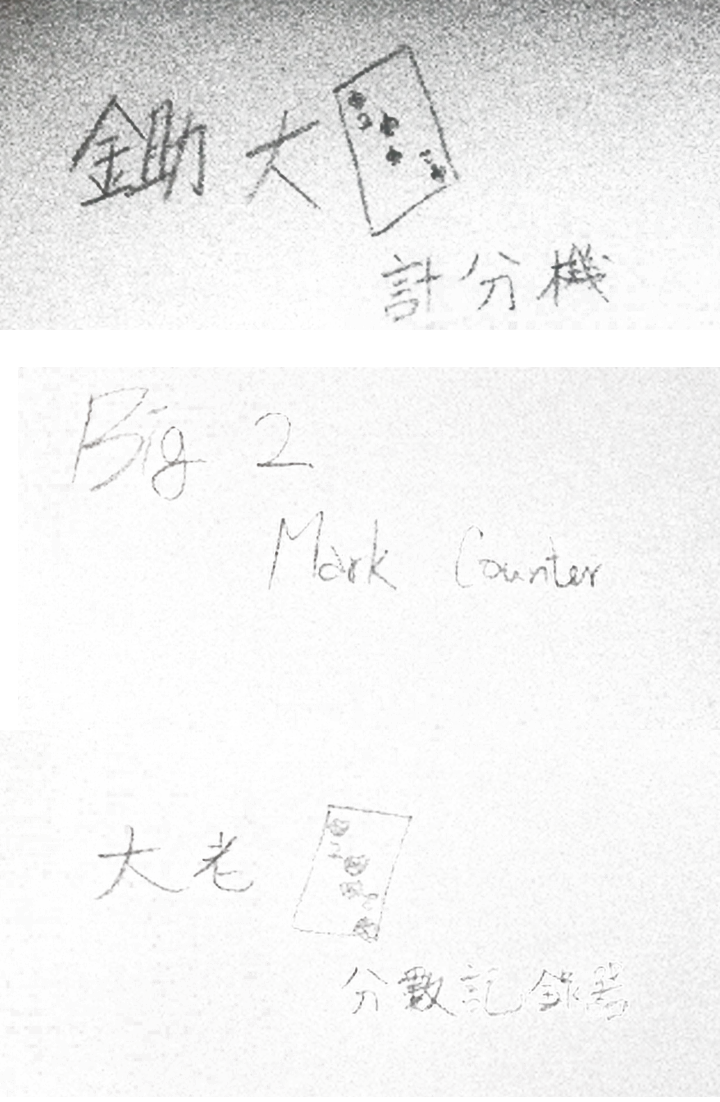 鋤大
2 2
計分機
Big 2
Mark Counter
大老
2 2
分數記錄器